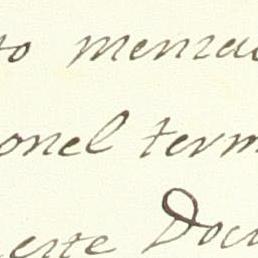 to menzac
onel term
uerte Docu